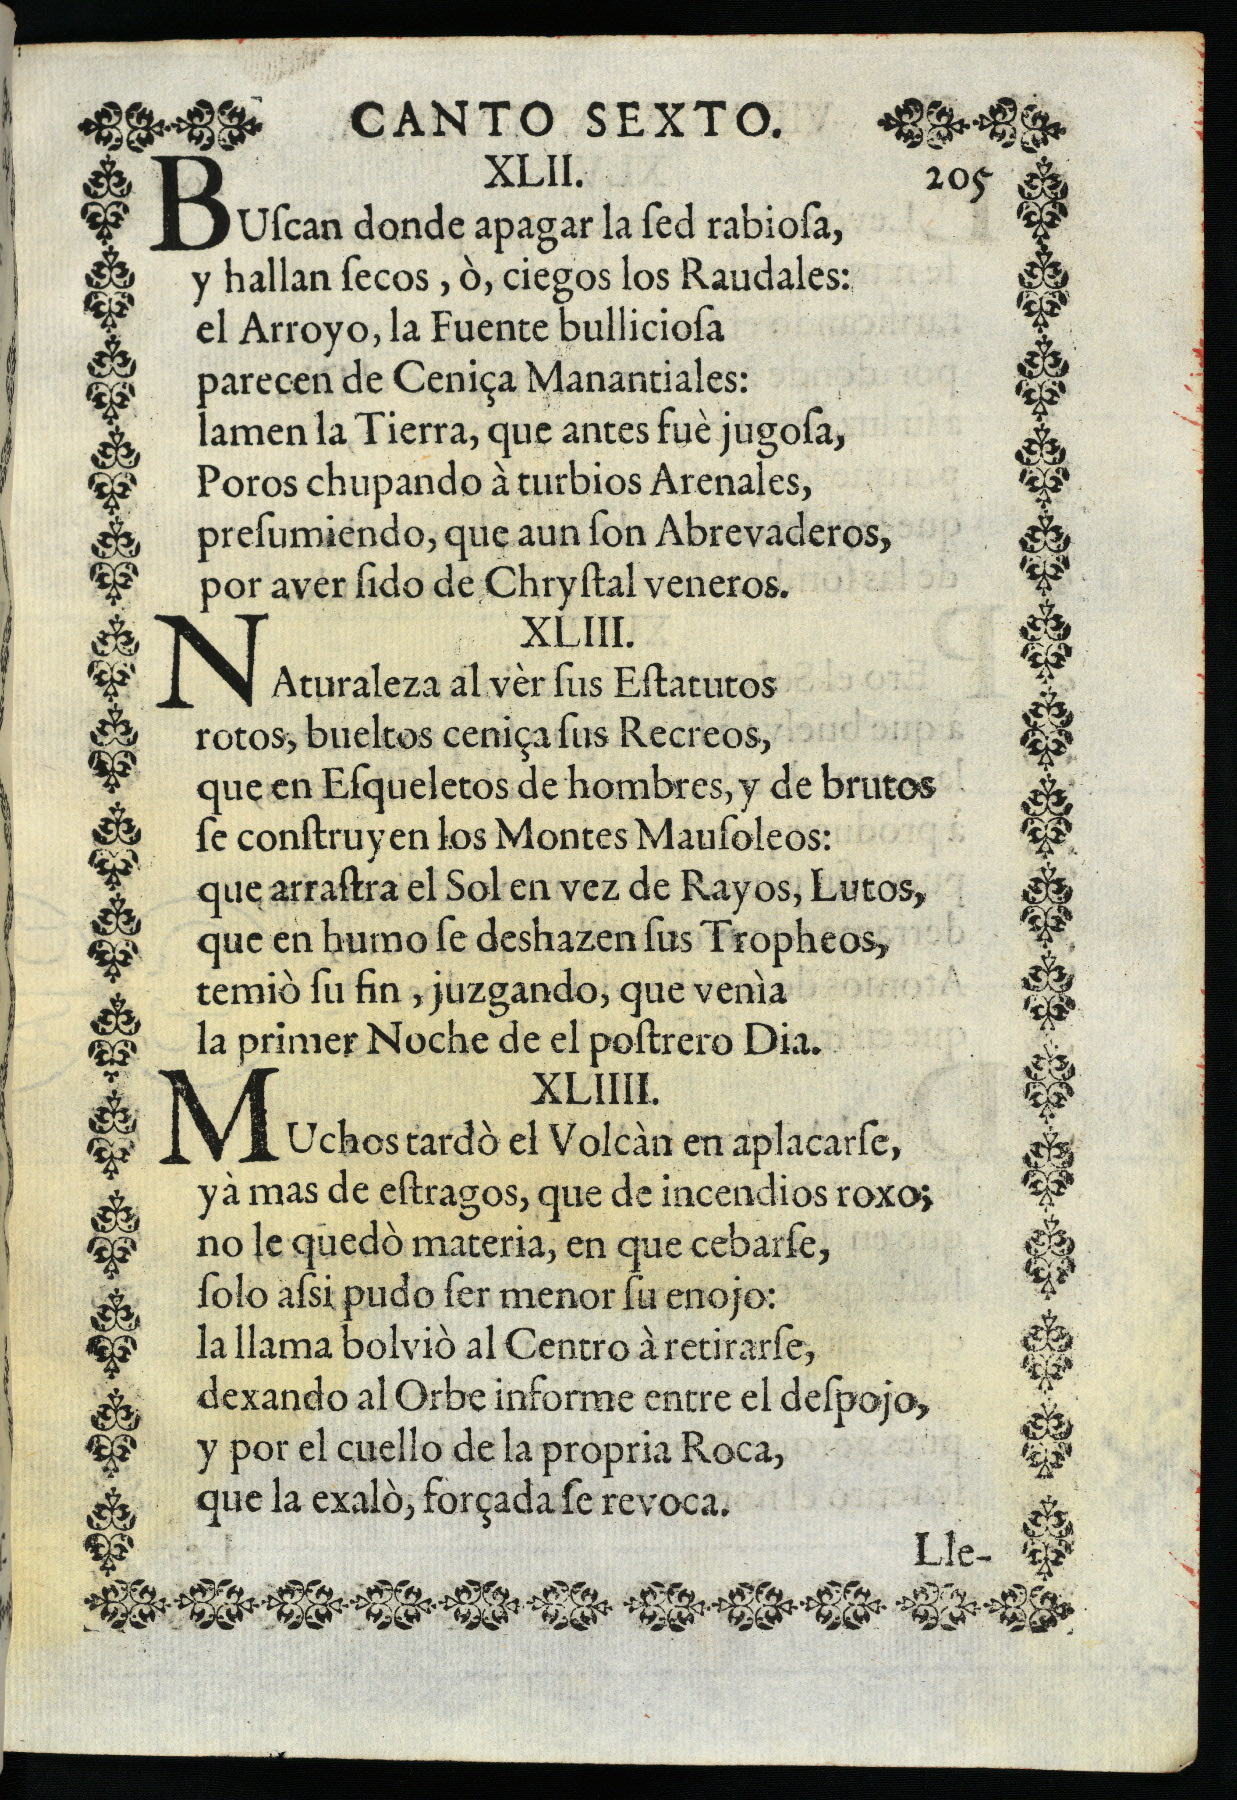 CANTO SEXTO.
XLII.
205
BUſcan donde apagar la ſed rabioſa,
y hallan ſecos, ò, ciegos los Raudales:
el Arroyo, la Fuente bullicioſa
parecen de Ceniça Manantiales:
lamen la Tierra, que antes fuè jugoſa,
Poros chupando à turbios Arenales,
preſumiendo, que aun ſon Abrevaderos,
por aver ſido de Chryſtal veneros.
XLIII.
NAturaleza al vèr ſus Eſtatutos
rotos, bueltos ceniça ſus Recreos,
que en Eſqueletos de hombres, y de brutos
ſe conſtruyen los Montes Mauſoleos:
que arraſtra el Sol en vez de Rayos, Lutos,
que en humo ſe deshazen ſus Tropheos,
temiò ſu fin, juzgando, que venìa
la primer Noche de el poſtrero Dia.
XLIIII.
MUchos tardò el Volcàn en aplacarſe,
yà mas de eſtragos, que de incendios roxo;
no le quedò materia, en que cebarſe,
ſolo aſsi pudo ſer menor ſu enojo:
la llama bolviò al Centro à retirarſe,
dexando al Orbe informe entre el deſpojo,
y por el cuello de la propria Roca,
que la exalò, forçada ſe revoca.
Lle-